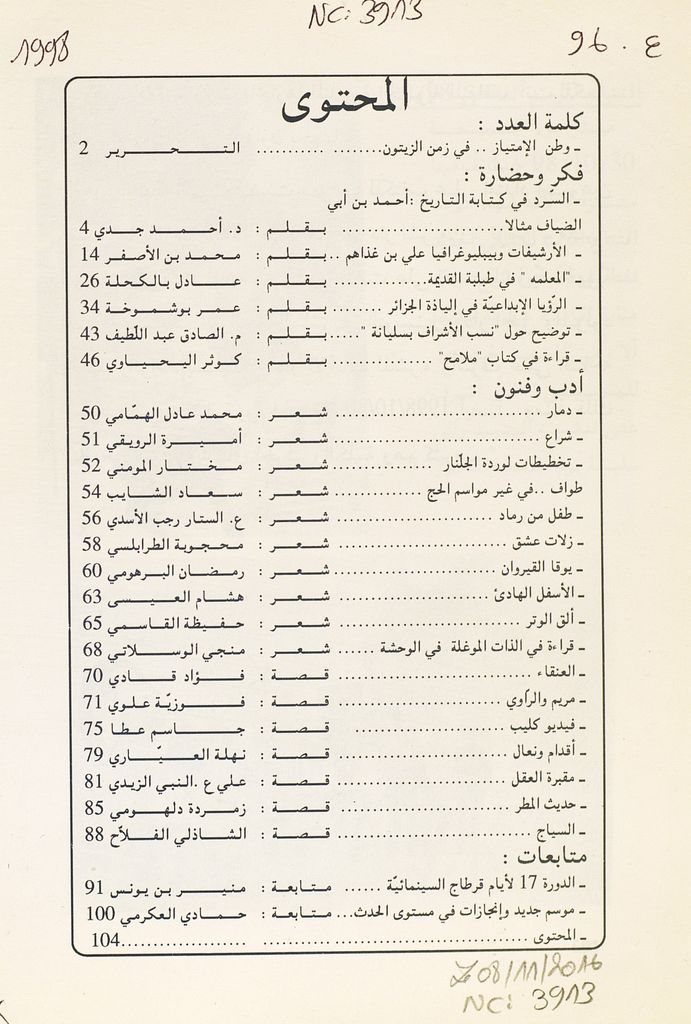 NC: 3913
1998
ع . 96
المحتوى
كلمة العدد :
ـ وطن الإمتياز .. في زمن الزيتون........ .......... التـحـريـر 2
فكر وحضارة :
ـ السّرد في كتابة التاريخ :أحمد بن أبي
الضياف مثالا...................... بقلم : د. أحمد جدي 4
ـ الأرشيفات وبيبليوغرافيا علي بن غذاهم ...بقلم : محمد بن الأصفر 14
ـ "المعلمه " في طبلبة القديمة...............بقلم : عادل بالكحلة 26
ـ الرّؤيا الإبداعيّة في إلياذة الجزائر ......بقلم : عمر بوشموخة 34
ـ توضيح حول "نسب الأشراف بسليانة ".....بقلم : م. الصادق عبد اللّطيف 43
ـ قراءة في كتاب "ملامح" ...............بقلم : كوثر اليحياوي 46
أدب وفنون :
ـ دمار ............................. شعر : محمد عادل الهمّامي 50
ـ شراع ............................. شعر : أميرة الرويقي 51
ـ تخطيطات لوردة الجلّنار ............... شعر : مختار المومني 52
طواف ..في غير مواسم الحج ............. شعر : سعاد الشايب 54
ـ طفل من رماد ....................... شعر : ع. الستار رجب الأسدي 56
ـ زلات عشق ......................... شعر : محجوبة الطرابلسي 58
ـ يوقا القيروان ....................... شعر : رمضان البرهومي 60
ـ الأسفل الهادئ ...................... شعر : هشام العيسى 63
ـ ألق الوتر .......................... شعر : حفيظة القاسمي 65
ـ قراءة في الذات الموغلة في الوحشة ...... شعر : منجي الوسلاتي 68
ـ العنقاء ............................ قصة : فؤاد قادي 70
ـ مريم والرّاوي ....................... قصة : فوزيّة علوي 71
ـ فيديو كليب ....................... قصة : جاسم عطا 75
ـ أقدام ونعال ........................ قصة : نهلة العيّاري 79
ـ مقبرة العقل ........................ قصة : علي ع .النبي الزيدي 81
ـ حديث المطر ....................... قصة : زمردة دلهومي 85
ـ السياج ............................ قصة : الشاذلي الفلاّح 88
متابعات :
ـ الدورة 17 لأيام قرطاج السينمائيّة ...... متابعة : منير بن يونس 91
ـ موسم جديد وإنجازات في مستوى الحدث... متابعة : حمادي العكرمي 100
ـ المحتوى ...........................................104
Le 08/11/2016
NC: 3913